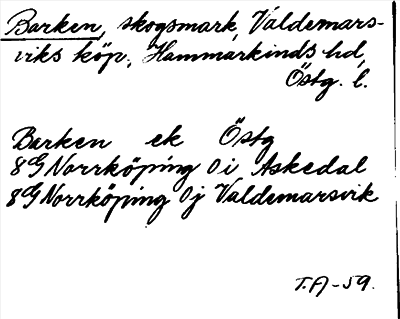 Barken, skogsmark, Valdemars-
viks köp., Hammarkinds hd,
Östg. l.
Barken ek Östg
8G Norrköping 0i Askedal
8G Norrköping 0j Valdemarsvik
T.A-59.